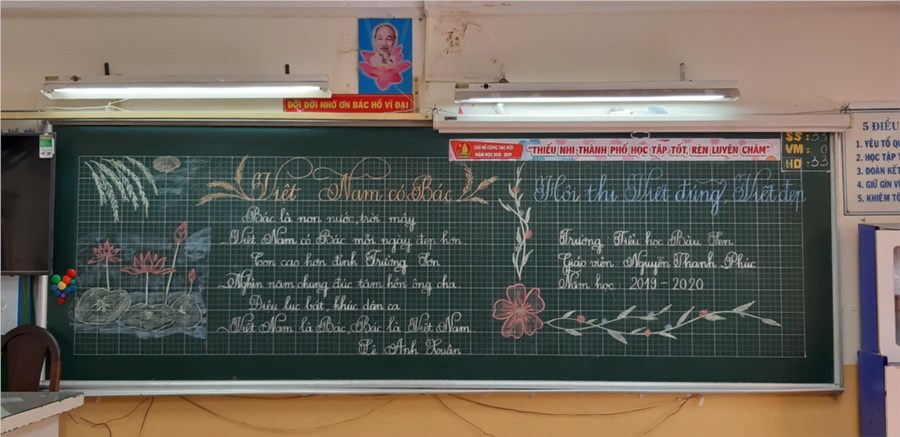 ĐỜI ĐỜI NHỚ ƠN BÁC HỒ VĨ ĐẠI
CHỦ ĐỀ CÔNG TÁC ĐỘI
"THIẾU NHI THÀNH PHỐ HỌC TẬP TỐT, RÈN LUYỆN CHĂM"
SS: 33
VM: 0
HD: 33
Việt Nam có Bác
Bác là non nước trời mây
Việt Nam có Bác mỗi ngày đẹp hơn
Còn cao hơn đỉnh Trường Sơn
Nghìn năm chung đúc tâm hồn ông cha
Điệu lục bát, khúc dân ca
Việt Nam là Bác, Bác là Việt Nam
Lê Anh Xuân
Hội thi Viết đúng Viết đẹp
Trường Tiểu học Bàu Sen
Giáo viên Nguyễn Thanh Phúc
Năm học 2019 - 2020
5 ĐIỀU
1. YÊU TỔ QU
2. HỌC TẬP T
3. ĐOÀN KẾT
4. GIỮ GÌN V
5. KHIÊM TỐ